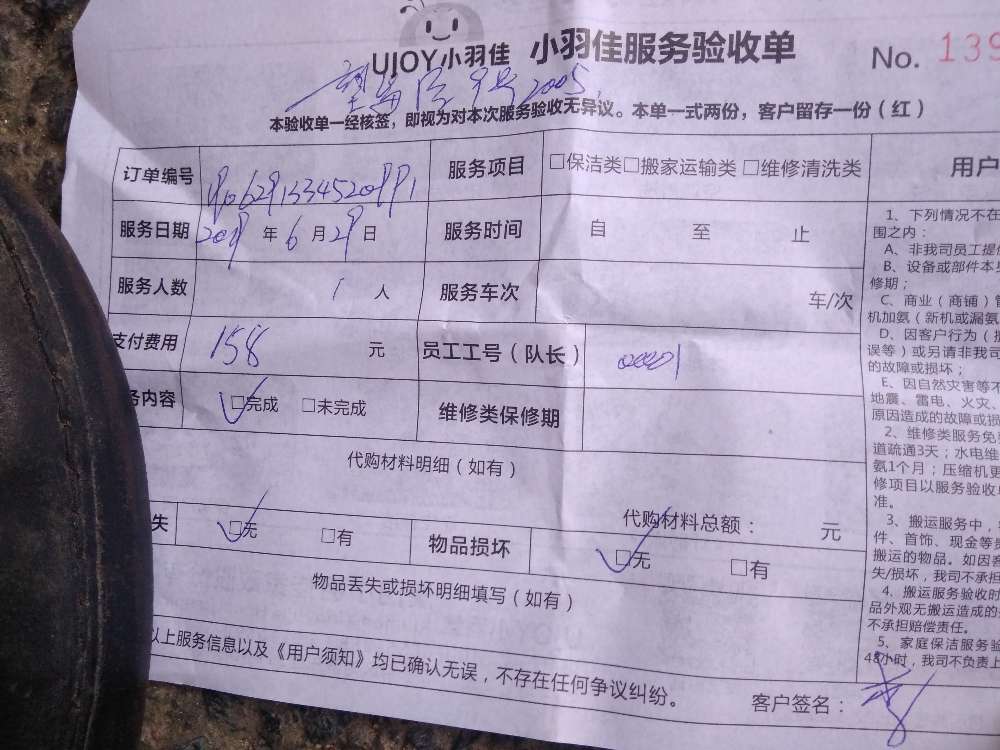 UJOY小羽佳 小羽佳服务验收单 No. 139
2005
本验收单一经核签，即视为对本次服务验收无异议。本单一式两份，客户留存一份（红）
订单编号 服务项目 □保洁类□搬家运输类 □维修清洗类 用户
服务日期 2019 年 6 月 29 日 服务时间 自 至 止
服务人数 1 人 服务车次 车/次
支付费用 158 元 员工工号（队长） 00001
务内容 □完成 □未完成 维修类保修期
代购材料明细（如有）
代购材料总额： 元
失 □无 □有 物品损坏 □无 □有
物品丢失或损坏明细填写（如有）
以上服务信息以及《用户须知》均已确认无误，不存在任何争议纠纷。
客户签名：
1、下列情况不在
围之内：
A、非我司员工提供
B、设备或部件本身
修期；
C、商业（商铺）管
机加氨（新机或漏氨
D、因客户行为（损
误等）或另请非我司
的故障或损坏；
E、因自然灾害等不
地震、雷电、火灾、
原因造成的故障或损
2、维修类服务免费
道疏通3天；水电维
氨1个月；压缩机更
修项目以服务验收单
准。
3、搬运服务中，
件、首饰、现金等贵
搬运的物品。如因客
失/损坏，我司不承担
4、搬运服务验收时
品外观无搬运造成的
不承担赔偿责任。
5、家庭保洁服务验
48小时，我司不负责上